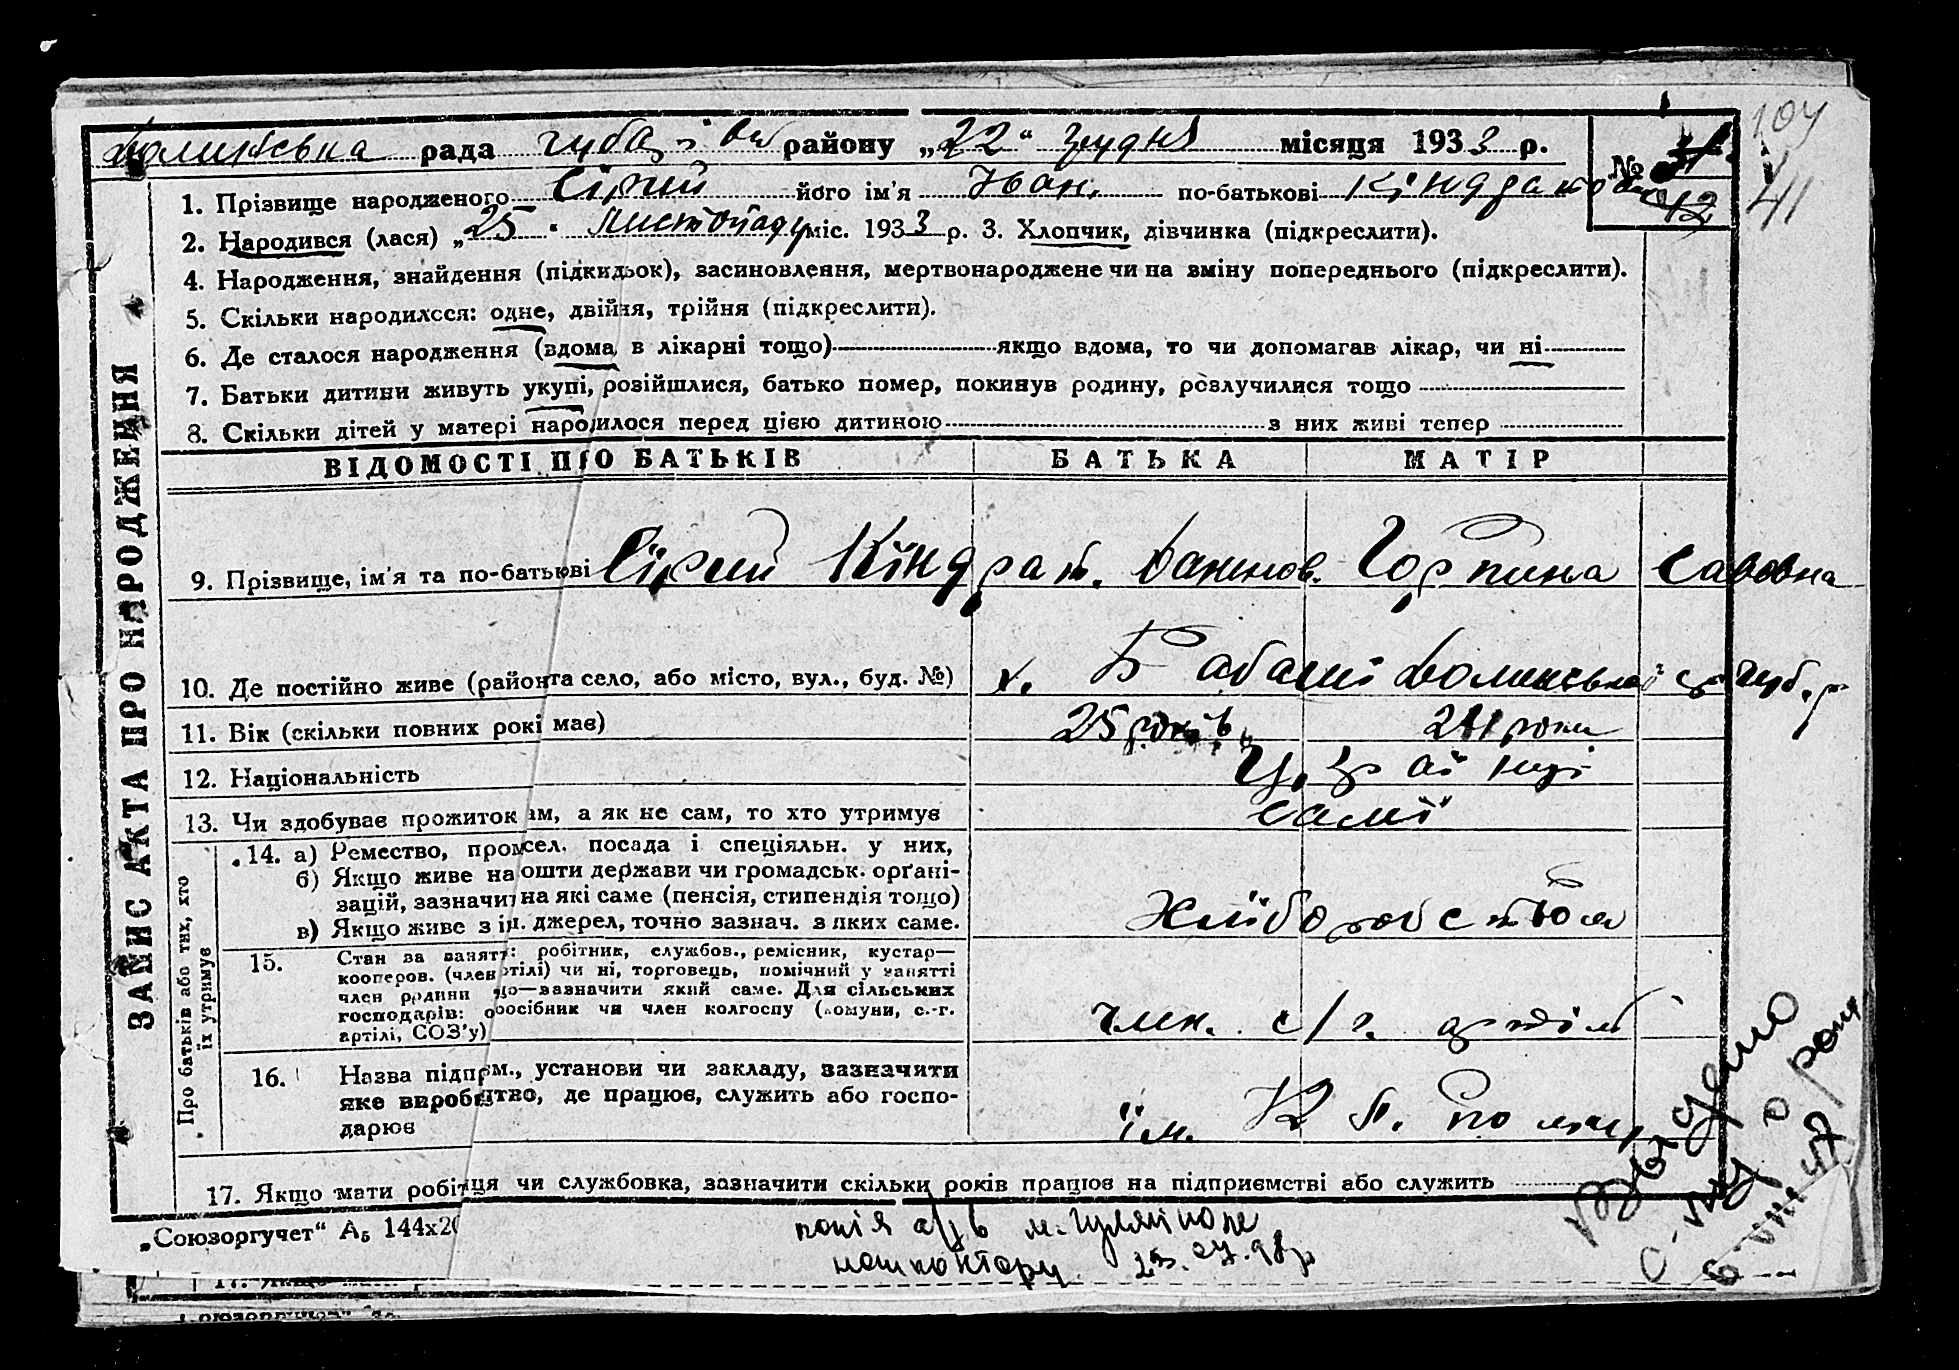 рада району „22“ грудня місяця 1933 р. №
104
41
12
1. Прізвище народженого Сірий його ім'я Іван. по-батькові Кіндратович
2. Народився (лася) „25“ листопаду міс. 1933 р. 3. Хлопчик, дівчинка (підкреслити).
4. Народження, знайдення (підкидьок), засиновлення, мертвонароджене чи на зміну попереднього (підкреслити).
5. Скільки народилося: одне, двійня, трійня (підкреслити).
6. Де сталося народження (вдома, в лікарні тощо) якщо вдома, то чи допомагав лікар, чи ні
7. Батьки дитини живуть укупі, розійшлися, батько помер, покинув родину, розлучилися тощо
8. Скільки дітей у матері народилося перед цією дитиною з них живі тепер
ВІДОМОСТІ ПРО БАТЬКІВ БАТЬКА МАТІР
9. Прізвище, ім'я та по-батькові Сірий Кіндрат. Горпина Савовна
10. Де постійно живе (район та село, або місто, вул., буд. №) х.
11. Вік (скільки повних років має) 25 років роки
12. Національність
13. Чи здобуває прожиток сам, а як не сам, то хто утримує самі
14. а) Ремество, промисел. посада і спеціяльн. у них,
б) Якщо живе на кошти держави чи громадськ. орґані-
зацій, зазначити на які саме (пенсія, стипендія тощо)
в) Якщо живе з ін. джерел, точно зазнач. з яких саме.
Хліборобством
15. Стан за занятт: робітник, службов., ремісник, кустар—
кооперов. (член артілі) чи ні, торговець, помічний у занятті
член родини що—зазначити який саме. Для сільських
господарів: одноосібник чи член колгоспу (комуни, с.-г.
артілі, СОЗ'у)
член. с/г. артілі
16. Назва підпрм., установи чи закладу, зазначити
яке виробництво, де працює, служить або госпо-
дарює
ім.
17. Якщо мати робітниця чи службовка, зазначити скільки років працює на підприємстві або служить
„Союзоргучет“ А₅ 144х20
копія м. Гуляйполе
нотконтору
ЗАПИС АКТА ПРО НАРОДЖЕННЯ
Про батьків або тих, хто
їх утримує
Выдано